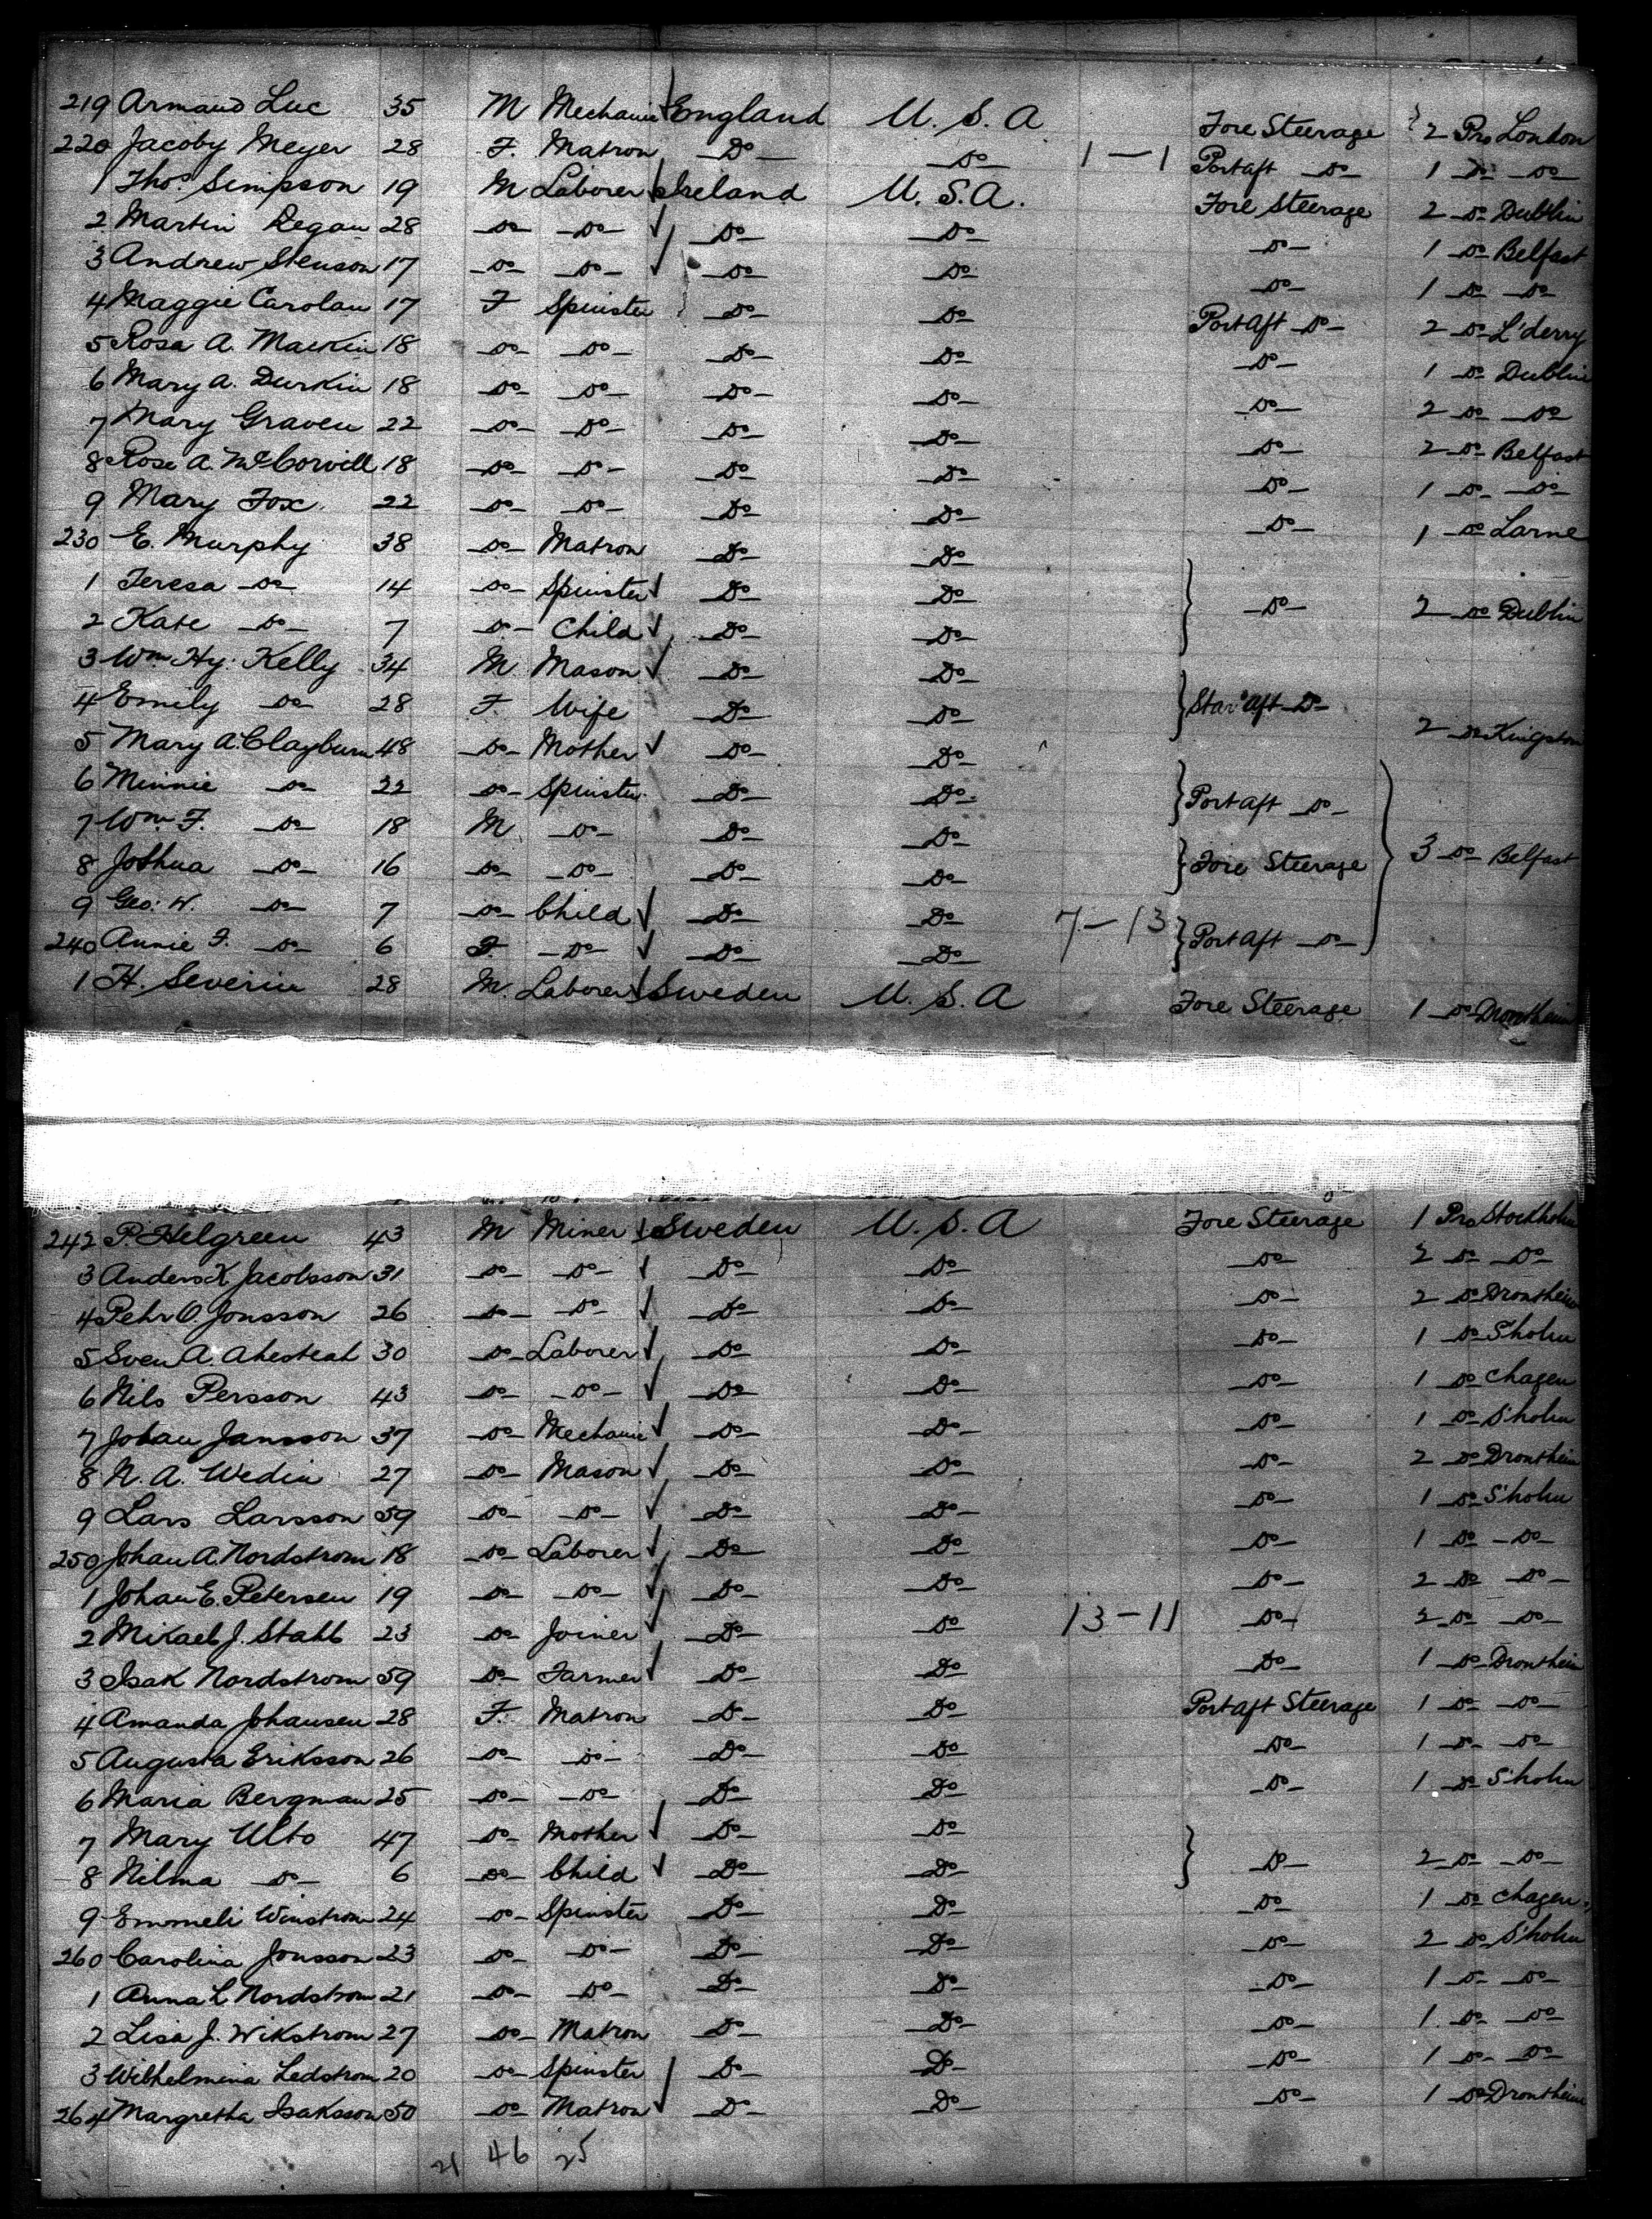 219 Armand Luc 35 M Mechanic England U. S. A Fore Steerage 2 Prs London
220 Jacoby Meyer 28 F. Matron Do Do 1-1 Port aft Do 1 Do Do
1 Thos. Simpson 19 M Laborer Ireland U. S. A. Fore Steerage 2 Do Dublin
2 Martin Degan 28 Do Do Do Do Do 1 Do Belfast
3 Andrew Stenson 17 Do Do Do Do Do 1 Do Do
4 Maggie Carolan 17 F Spinster Do Do Port aft Do 2 Do L'derry
5 Rosa A. Mackin 18 Do Do Do Do Do 1 Do Dublin
6 Mary A. Durkin 18 Do Do Do Do Do 2 Do Do
7 Mary Graven 22 Do Do Do Do Do 2 Do Belfast
8 Rose A. McCorvill 18 Do Do Do Do Do 1 Do Do
9 Mary Fox 22 Do Do Do Do Do 1 Do Larne
230 E. Murphy 38 Do Matron Do Do
1 Teresa Do 14 Do Spinster Do Do Do 2 Do Dublin
2 Kate Do 7 Do Child Do Do
3 Wm Hy. Kelly 34 M Mason Do Do
4 Emily Do 28 F. Wife Do Do Star aft Do 2 Do Kingston
5 Mary A. Clayburn 48 Do Mother Do Do
6 Minnie Do 22 Do Spinster Do Do Port aft Do
7 Wm. F. Do 18 M Do Do Do
8 Joshua Do 16 Do Do Do Do Fore Steerage 3 Do Belfast
9 Geo. W. Do 7 Do Child Do Do 7-13
240 Annie F. Do 6 F. Do Do Do Port aft Do
1 H. Severin 28 M. Laborer Sweden U. S. A Fore Steerage 1 Do Drontheim
242 P. Helgreen 43 M Miner Sweden U. S. A Fore Steerage 1 Prs Stockholm
3 Anders K Jacobsson 31 Do Do Do Do Do 2 Do Do
4 Pehr O. Jonsson 26 Do Do Do Do Do 2 Do Drontheim
5 Sven A. 30 Do Laborer Do Do Do 1 Do S'holm
6 Nils Persson 43 Do Do Do Do Do 1 Do Chagen
7 Johan Jansson 37 Do Mechanic Do Do Do 1 Do S'holm
8 N. A. Wedin 27 Do Mason Do Do Do 2 Do Drontheim
9 Lars Larsson 59 Do Do Do Do Do 1 Do S'holm
250 Johan A. Nordstrom 18 Do Laborer Do Do Do 1 Do Do
1 Johan E. Petersen 19 Do Do Do Do Do 2 Do Do
2 Mikael J. Stahl 23 Do Joiner Do Do 13-11 Do 2 Do Do
3 Isak Nordstrom 59 Do Farmer Do Do Do 1 Do Drontheim
4 Amanda Johansen 28 F. Matron Do Do Port aft Steerage 1 Do Do
5 Augusta Eriksson 26 Do Do Do Do Do 1 Do Do
6 Maria Bergman 25 Do Do Do Do Do 1 Do S'holm
7 Mary Ulto 47 Do Mother Do Do
8 Nilma Do 6 Do Child Do Do Do 2 Do Do
9 Emmeli Winstrom 24 Do Spinster Do Do Do 1 Do Chagen
260 Carolina Jonsson 23 Do Do Do Do Do 2 Do S'holm
1 Anna L Nordstrom 21 Do Do Do Do Do 1 Do Do
2 Lisa J. Wikstrom 27 Do Matron Do Do Do 1 Do Do
3 Wilhelmina Ledstrom 20 Do Spinster Do Do Do 1 Do Do
264 Margretha Isaksson 50 Do Matron Do Do Do 1 Do Drontheim
21 46 25